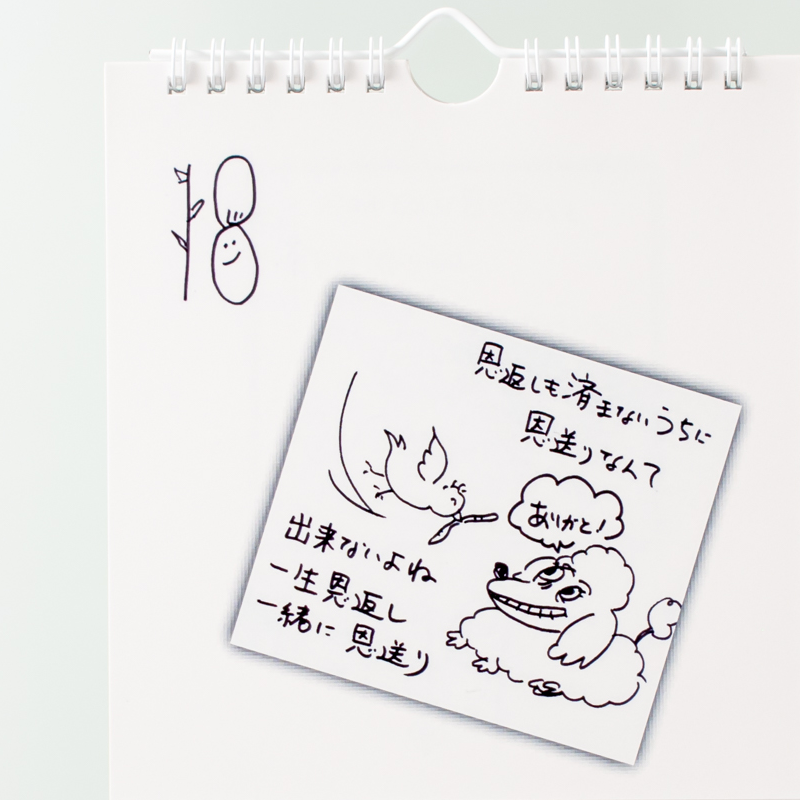 18
恩返しも済まないうちに
恩送りなんて
ありがと!
出来ないよね
一生恩返し
一緒に恩送り